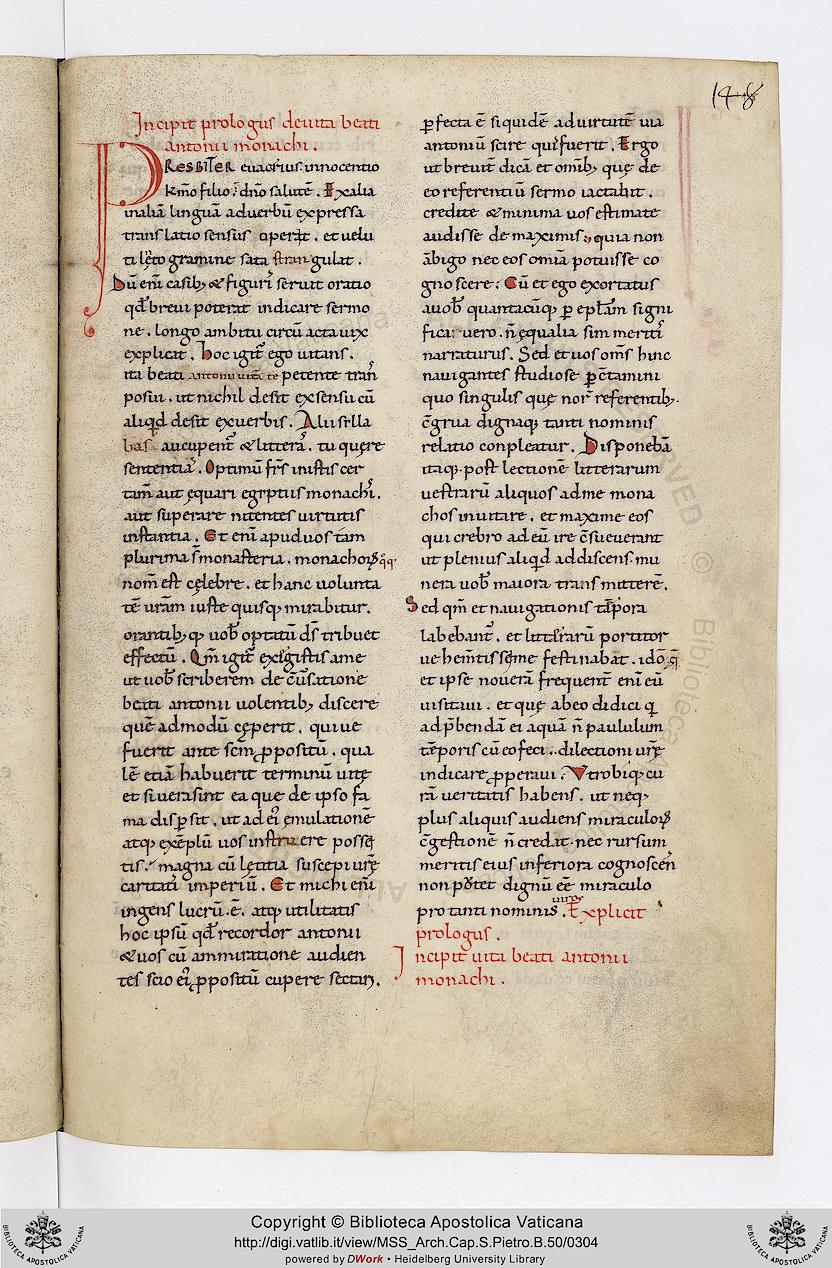 148
Incipit prologus de uita beati
antonii monachi .
PRESBITER euacrius innocentio
k̄mo filio . dn̄o salutē . Ex alia
in aliā linguā ad uerbū expressa
translatio sensus operit . et uelu
ti lęto gramine sata strangulat .
Dū eni casib; & figuris seruit oratio
qd̄ breui poterat indicare sermo
ne . longo ambitu circū acta uix
explicat . hoc igit̄ ego uitans .
ita beati antonii uitā te petente tran
posui . ut nichil desit ex sensu cū
aliqd desit ex uerbis . Alii silla
bas aucupent̄ & litteras . tu quere
sententiā . Optimū frs inistis cer
tam̄ aut ęquari egyptiis monachis .
aut superare nitentes uirtutis
instantia . Et eni apud uos tam
plurima s̄ monasteria . monachorꝝ qꝫ
nom̄ est cęlebre . et hanc uolunta
tē urām iuste quisq; mirabitur .
orantib; q; uob optatū ds̄ tribuet
effectū . Qm̄ igit̄ exegistis a me
ut uob scriberem de cūsatione
beati antonii uolentib; discere
quē admodū cęperit . qui ue
fuerit ante scm̄ ꝓpositū . qua
lē etiā habuerit terminū uitę
et si uera sint ea que de ipso fa
ma dispersit . ut ad ei emulationē
atq; exēplū uos instruere possę
tis . magna cū lętitia suscepi urę
caritatis imperiū . Et michi eni
ingens lucrū . ē . atq; utilitatis
hoc ipsū qd̄ recordor antonii
& uos cū ammiratione audien
tes scio ei ꝓpositū cupere sectari .
ꝑfecta ē siquidē ad uirtutē uia
antoniū scire quis fuerit . Ergo
ut breuit̄ dicā et omīb; quę de
eo referentiū sermo iactabit .
credite & minima uos estimate
audisse de maximis ; quia non
ābigo nec eos omīa potuisse co
gnoscere ; Cū et ego exortatus
a uob quantacūq; ꝑ eplām signi
ficat uero . n̄ ęqualia sim meritis
narraturus . Sed et uos oms̄ hinc
nauigantes studiose ꝑctamini
quo singulis quę norꝛ̄ referentib; .
c̄grua dignaq; tanti nominis
relatio conpleatur . Disponebā
itaq; post lectionē litterarum
uestrarū aliquos ad me mona
chos inuitare . et maxime eos
qui crebro ad eū ire c̄sueuerant
ut plenius aliqd addiscens . mu
nera uob maiora transmitterē .
Sed qm̄ et nauigationis tēpora
labebant̄ . et litterarū portitor
uehemtissęme festinabat . idō q̄
et ipse nouerā frequent̄ eni eū
uisitiui . et quę ab eo didici q
ad p̄bendā ei aquā n̄ paululum
tēporis cū eo feci . dilectioni urę
indicare ꝓperaui . Vtrobiq; cu
rā ueritatis habens . ut neq;
plus aliquis audiens miraculorꝝ
c̄gestionē n̄ credat . nec rursum
meritis eius inferiora cognoscen
non putet dignū eē miraculo
pro tanti nominis uiro . Explicit
prologus .
Incipit uita beati antonii
monachi .
Copyright © Biblioteca Apostolica Vaticana
http://digi.vatlib.it/view/MSS_Arch.Cap.S.Pietro.B.50/0304
powered by DWork • Heidelberg University Library